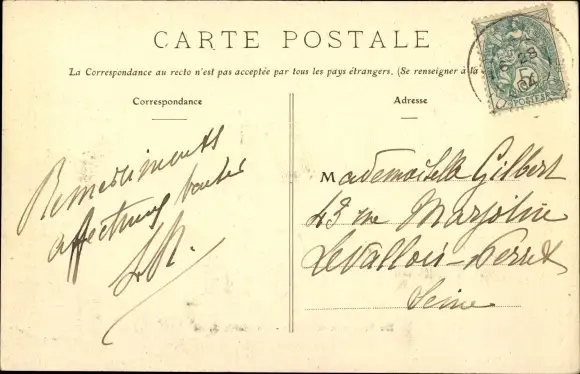 CARTE POSTALE
La Correspondance au recto n'est pas acceptée par tous les pays étrangers. (Se renseigner à la
Correspondance
Adresse
Remerciments
affectueux
LR.
Mademoiselle Gilbert
43 rue Marjolin
Levallois-Perret
Seine
28
04
5
POSTES